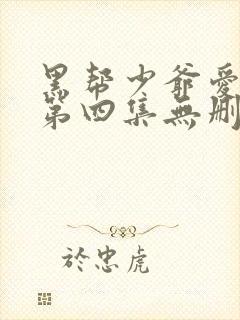 黑帮少爺愛
第四集無删
於忠虎